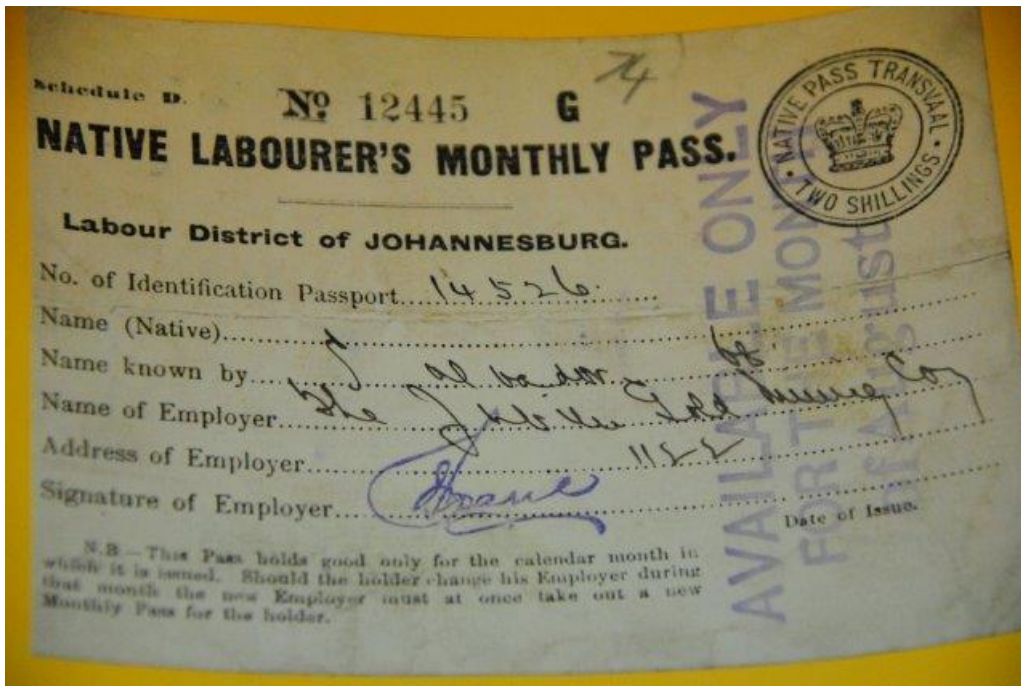 74
Schedule D. No 12445 G
NATIVE LABOURER'S MONTHLY PASS.
NATIVE PASS TRANSVAAL
TWO SHILLINGS
Labour District of JOHANNESBURG.
No. of Identification Passport 14526
Name (Native)
Name known by
Name of Employer The Gold Mining Coy
Address of Employer
Signature of Employer
Date of Issue.
N.B.—This Pass holds good only for the calendar month in
which it is issued. Should the holder change his Employer during
that month the new Employer must at once take out a new
Monthly Pass for the holder.
AVAILABLE ONLY
FOR THE MONTH
of August